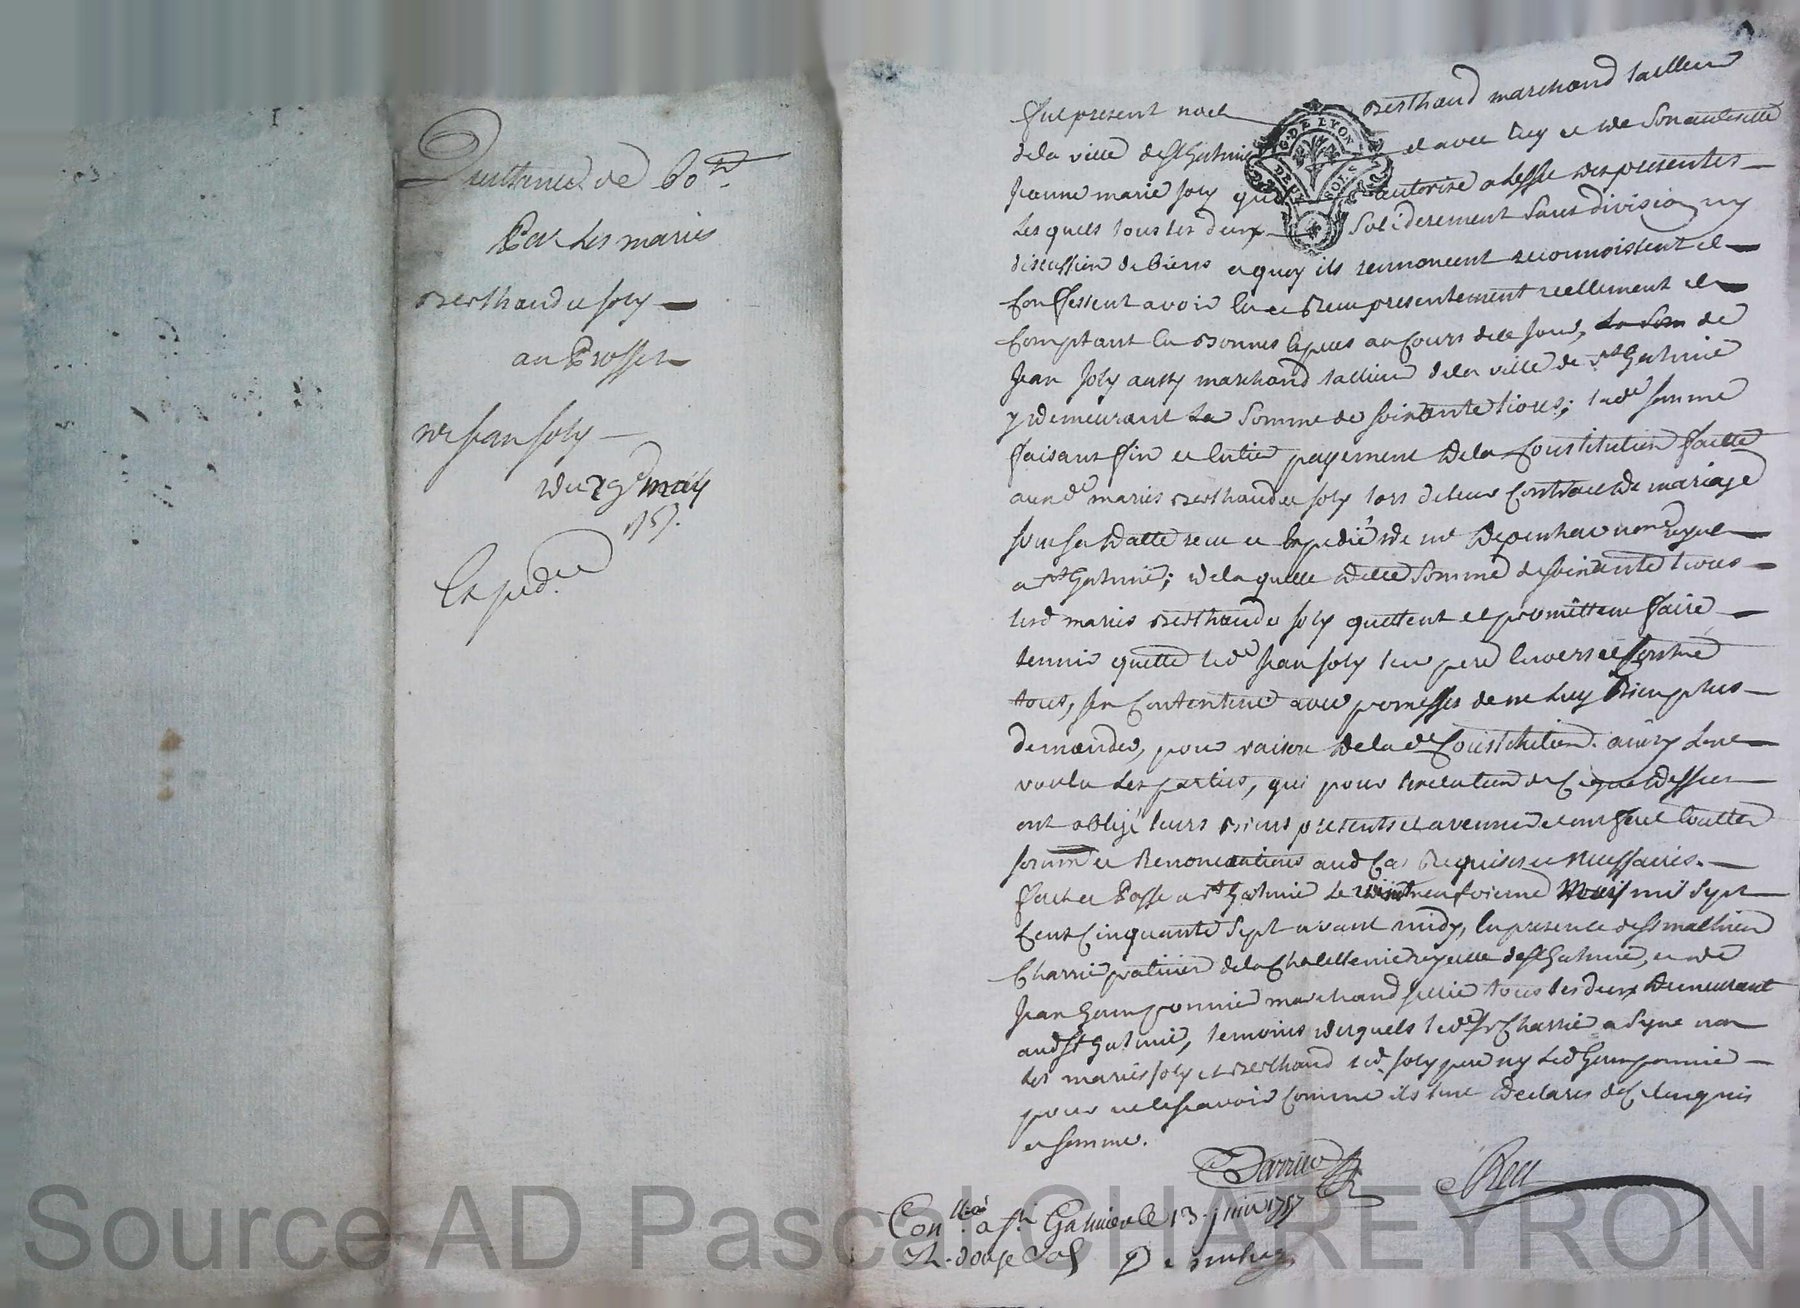 Quittance de 60 tt
Par les mariés
Berthaud et Joly
au Proffit
de Jean Joly
du 29e may
1757.
Expédiée
G. DE LYON
DEUX SOLS
Fut present noel Berthaud marchand tailleur
de la ville de St Galmier et avec luy et de son authorité
Jeanne marie Joly qui authorise a l'effet des presentes
Lesquels tous les deux solidairement sans division ny
discussion de biens a quoy ils renoncent reconnoissent et
Confessent avoir eu et Receu presentement reellement et
Comptant en bonnes especes au Cours de ce jour, de
Jean Joly aussy marchand tailleur de la ville de St Galmier
y demeurant La Somme de soixante livres; lade somme
faisant fin et entier payement de la Constitution faitte
auxd. mariés Berthaud et Joly lors de leur Contract de mariage
sous sa datte receu et Expedié de me notre royal
a St Galmier; de laquelle ditte somme de soixante livres
lesd mariés Berthaud et Joly quittent et promettent faire
tenir quitte led. Jean Joly leur pere envers et contre
tous, se Contentent avec promesses de ne luy Rien plus
demander, pour raison de lade Constitution. ainsy l'ont
voulu les parties, qui pour l'exécution de Ce que dessus
ont obligé leurs Biens presents et avenir et ont fait touttes
soumons et Renonciations aud Cas Requises et necessaires.
Fait et Passé a St Galmier Le vint neufvieme May mil sept
Cent Cinquante sept avant midy, en presence de Sr mathieu
Charrié praticien de la Chatellenie royalle de St Galmier, et de
Jean Gamponnié marchand sellier tous les deux demeurant
aud St Galmier, temoins desquels led. Sr Charrié a signé non
les mariés Joly et Berthaud led. Joly pere ny led Gamponnié
pour ne le scavoir Comme ils l'ont declaré de Ce enquis
et sommés.
Con.llé a St Galmier le 13 juin 1757
R. douze sols